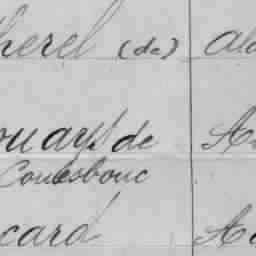 herel (de)
ouays de
Couesbouc
card